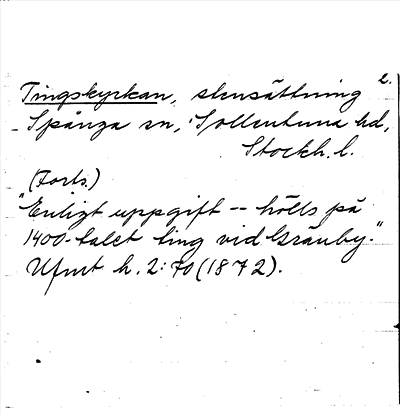 2.
Tingskyrkan, stensättning
Spånga sn, Sollentuna hd,
Stockh. l.
(Forts.)
"Enligt uppgift -- hölls på
1400-talet ting vid Gränby."
Ufmt h. 2: 70 (1872).